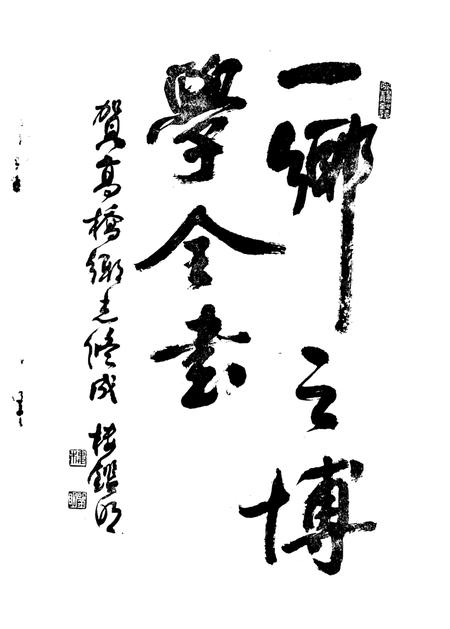 一鄉之博
學全書
賀高橋鄉志修成 楼鑑明